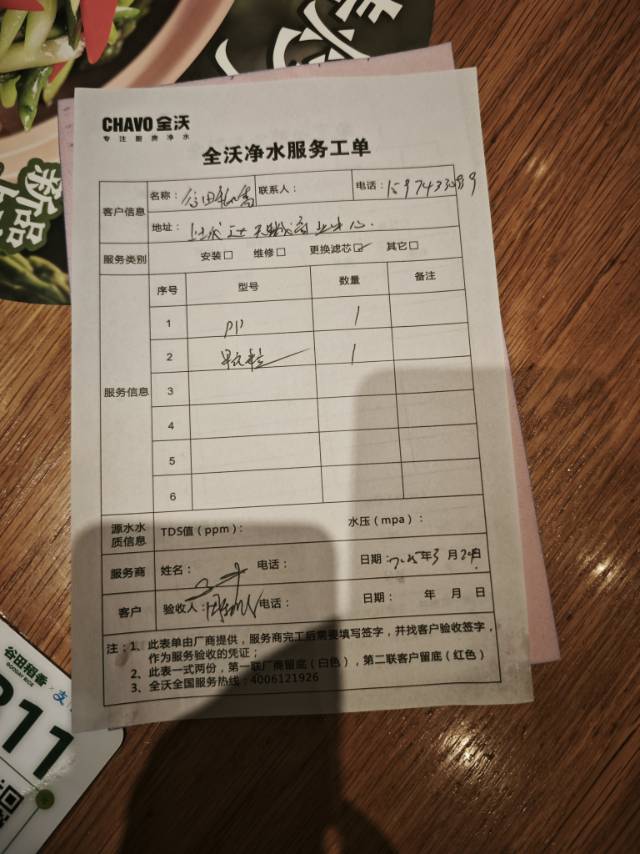 新品
CHAVO 全沃
专注厨房净水
全沃净水服务工单
客户信息
名称：谷田稻香 联系人： 电话：
地址：天城商业中心
服务类别 安装□ 维修□ 更换滤芯☑ 其它□
服务信息
序号 型号 数量 备注
1 PP 1
2 颗粒 1
3
4
5
6
源水水质信息 TDS值（ppm）： 水压（mpa）：
服务商 姓名： 电话： 日期：2025年3月20日
客户 验收人： 电话： 日期： 年 月 日
注：1、此表单由厂商提供，服务商完工后需要填写签字，并找客户验收签字，
作为服务验收的凭证；
2、此表一式两份，第一联厂商留底（白色），第二联客户留底（红色）
3、全沃全国服务热线：4006121926
谷田稻香
GOODAY RICE
支
211